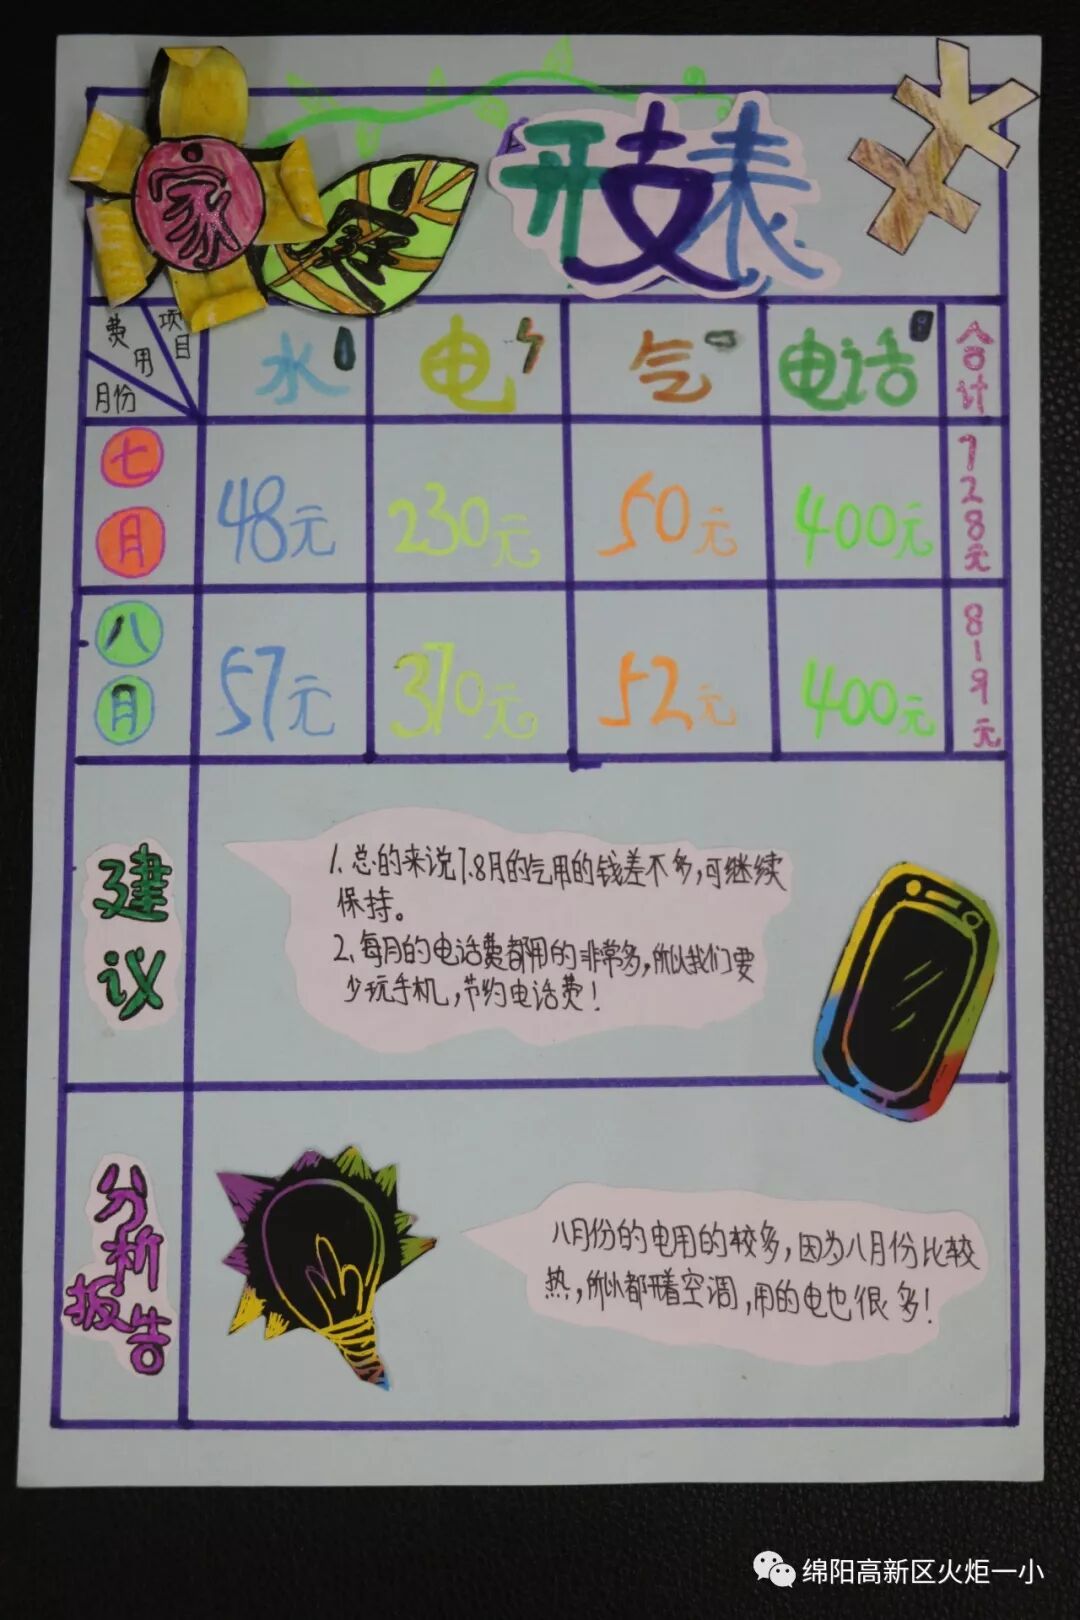 家庭开支表
费用 项目
月份
水 电 气 电话 合计
七月 48元 230元 50元 400元 728元
八月 57元 370元 52元 400元 819元
建议
1.总的来说7.8月的气用的钱差不多,可继续
保持。
2.每月的电话费都用的非常多,所以我们要
少玩手机,节约电话费!
分析报告
八月份的电用的较多,因为八月份比较
热,所以都开着空调,用的电也很多!
绵阳高新区火炬一小